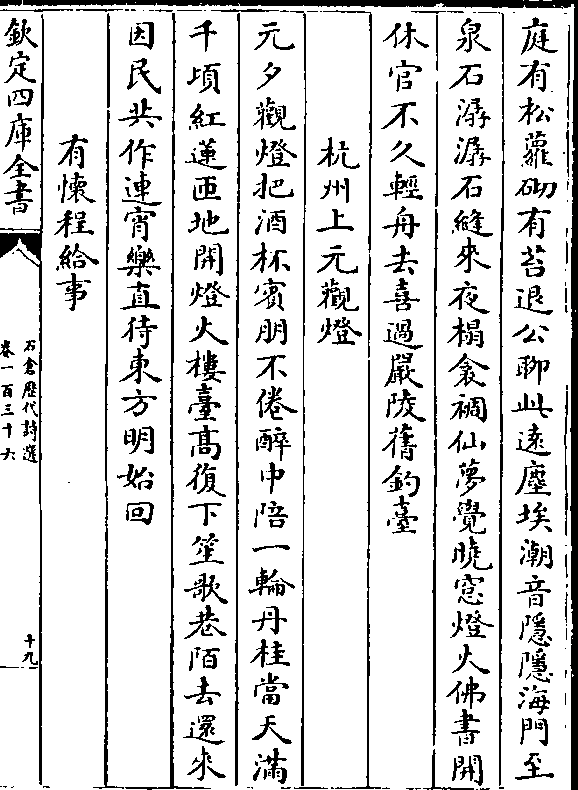 庭有松蘿砌有苔退公聊此遠塵埃潮音隱隱海門至
泉石潺潺石縫來夜榻衾裯仙夢覺曉窓燈火佛書開
休官不久輕舟去喜過嚴陵舊釣臺
杭州上元觀燈
元夕觀燈把酒杯賓朋不倦醉中陪一輪丹桂當天滿
千頃紅蓮匝地開燈火樓臺高復下笙歌巷陌去還來
因民共作連宵樂直待東方明始回
有懷程給事
欽定四庫全書
石倉歷代詩選
卷一百三十六
十九